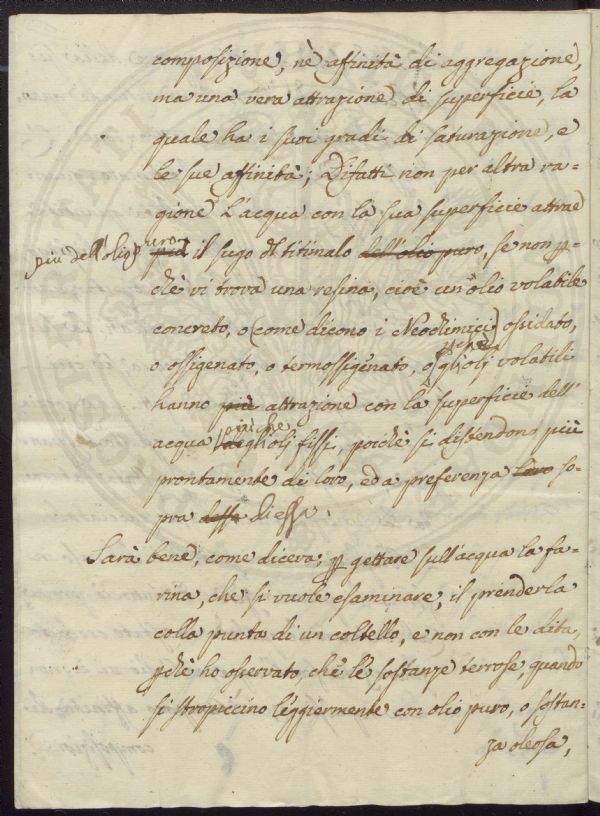 composizione, nè afinità di aggregazione,
ma una vera attrazione di superficie, la
quale ha i suoi gradi di saturazione, e
le sue affinità; Difatti non per altra ra=
gione l'acqua con la sua superficie attrae
più dell'olio puro
più il sugo di titimalo dell'olio puro, se non p=
chè vi trova una resina, cioè un'olio volabile
concreto, o (come dicono i Neochimici) ossidato,
o ossigenato, o termossigenato, e gli olj volatili
hanno più attrazione con la superficie dell'
acqua più che gli olj fissi, poichè si distendono più
prontamente di loro, ed a preferenza loro so=
pra dessa di essa.
Sarà bene, come diceva, p gettare sull'acqua la fa=
rina, che si vuole esaminare, il prenderla
colla punta di un coltello, e non con le dita,
pchè ho osservato, che le sostanze terrose, quando
si stropiccino leggiermente con olio puro, o sostan=
za oleosa,